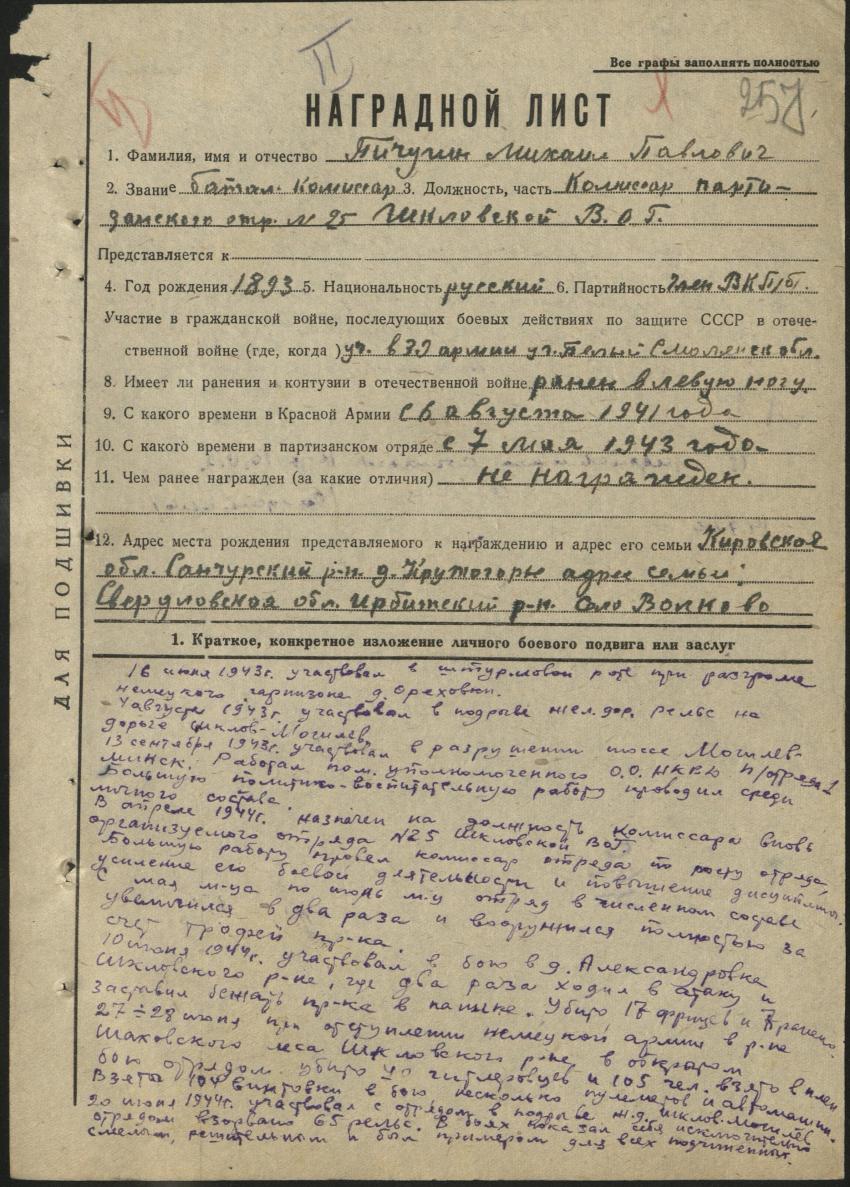 II
Все графы заполнять полностью
257.
НАГРАДНОЙ ЛИСТ
1. Фамилия, имя и отчество Пичугин Михаил Павлович
2. Звание батал. Комиссар 3. Должность, часть Комиссар парти-
занского отр. N 25 Шкловской В.О.Г.
Представляется к
4. Год рождения 1893 5. Национальность русский 6. Партийность член ВКП/б/.
Участие в гражданской войне, последующих боевых действиях по защите СССР в отече-
ственной войне (где, когда) уч. в 39 армии уч. Белый Смоленск обл.
8. Имеет ли ранения и контузии в отечественной войне ранен в левую ногу.
9. С какого времени в Красной Армии с 6 августа 1941 года
10. С какого времени в партизанском отряде с 7 мая 1943 года
11. Чем ранее награжден (за какие отличия) не награжден.
12. Адрес места рождения представляемого к награждению и адрес его семьи Кировская
обл. Санчурский р-н. д. Крутогорье адрес семьи:
Свердловская обл. Ирбитский р-н. село Волково
ДЛЯ ПОДШИВКИ
1. Краткое, конкретное изложение личного боевого подвига или заслуг
16 июня 1943г. участвовал в штурмовой роте при разгроме
немецкого гарнизона д. Ореховки.
4 августа 1943г. участвовал в подрыве жел. дор. рельс на
дороге Шклов-Могилев.
13 сентября 1943г. участвовал в разрушении шоссе Могилев-
Минск. Работал пом. уполномоченного О.О. НКВД п/отряда 1
Большую политико-воспитательную работу проводил среди
личного состава.
В апреле 1944г. назначен на должность комиссара вновь
организуемого отряда N25 Шкловской ВОГ.
Большую работу провел комиссар отряда по росту отряда,
усиление его боевой деятельности и повышение дисциплины.
С мая м-ца по июнь м-ц отряд в численном составе
увеличился в два раза и вооружился полностью за
счет трофей пр-ка.
10 июня 1944г. участвовал в бою в д. Александровка
Шкловского р-не, где два раза ходил в атаку и
заставил бежать пр-ка в панике. Убито 17 фрицев и 7 ранено.
27÷28 июня при отступлении немецкой армии в р-не
Шаховского леса Шкловского р-не, в открытом
бою отрядом убито 40 гитлеровцев и 105 чел. взято в плен
Взяты 104 винтовки в бою несколько пулеметов и автомашин.
20 июня 1944г. участвовал с отрядом в подрыве ж.д. Шклов-Могилев
отрядом взорвано 65 рельс. В боях показал себя исключительно
смелым, решительным и был примером для всех подчиненных.